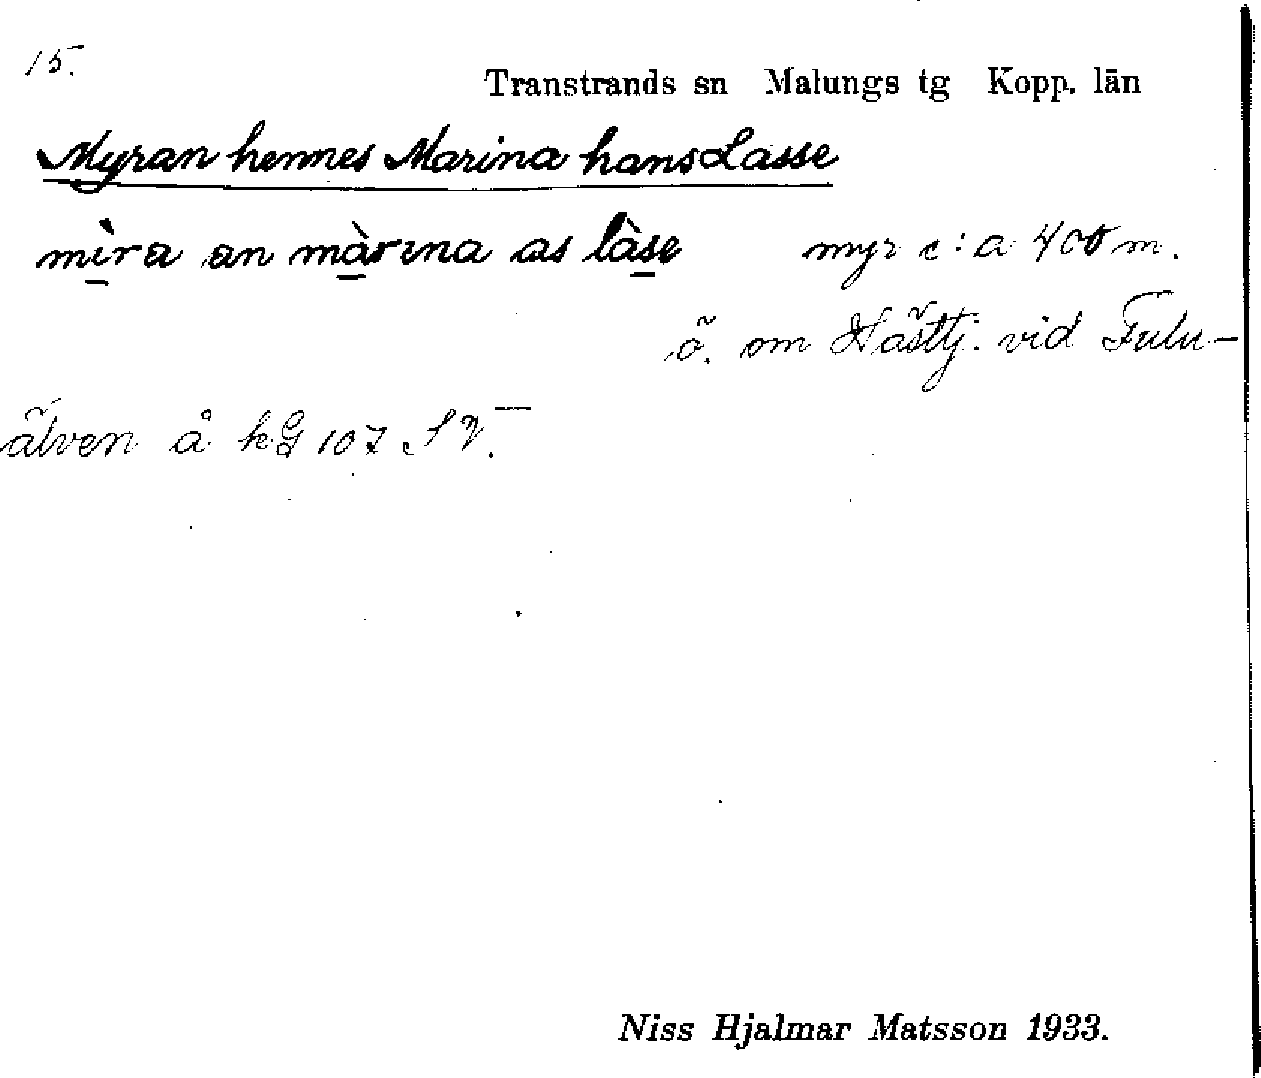 15.
Transtrands sn Malungs tg Kopp. län
Myran hennes Marina hans Lasse
mìra an màrına as làse myr c:a 400 m.
ö. om Hästtj. vid Fulu-
älven å kG 107 SV.
Niss Hjalmar Matsson 1933.